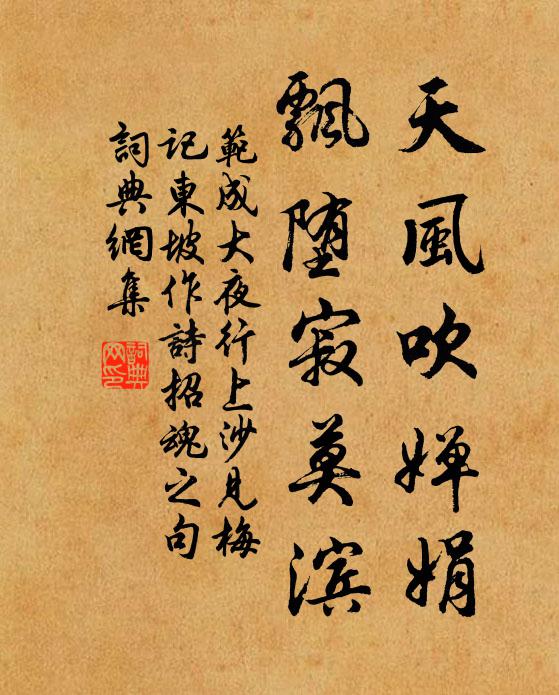 天風吹嬋娟
飄堕寂莫滨
範成大夜行上沙見梅
記東坡作詩招魂之句
詞典網集
詞典网印